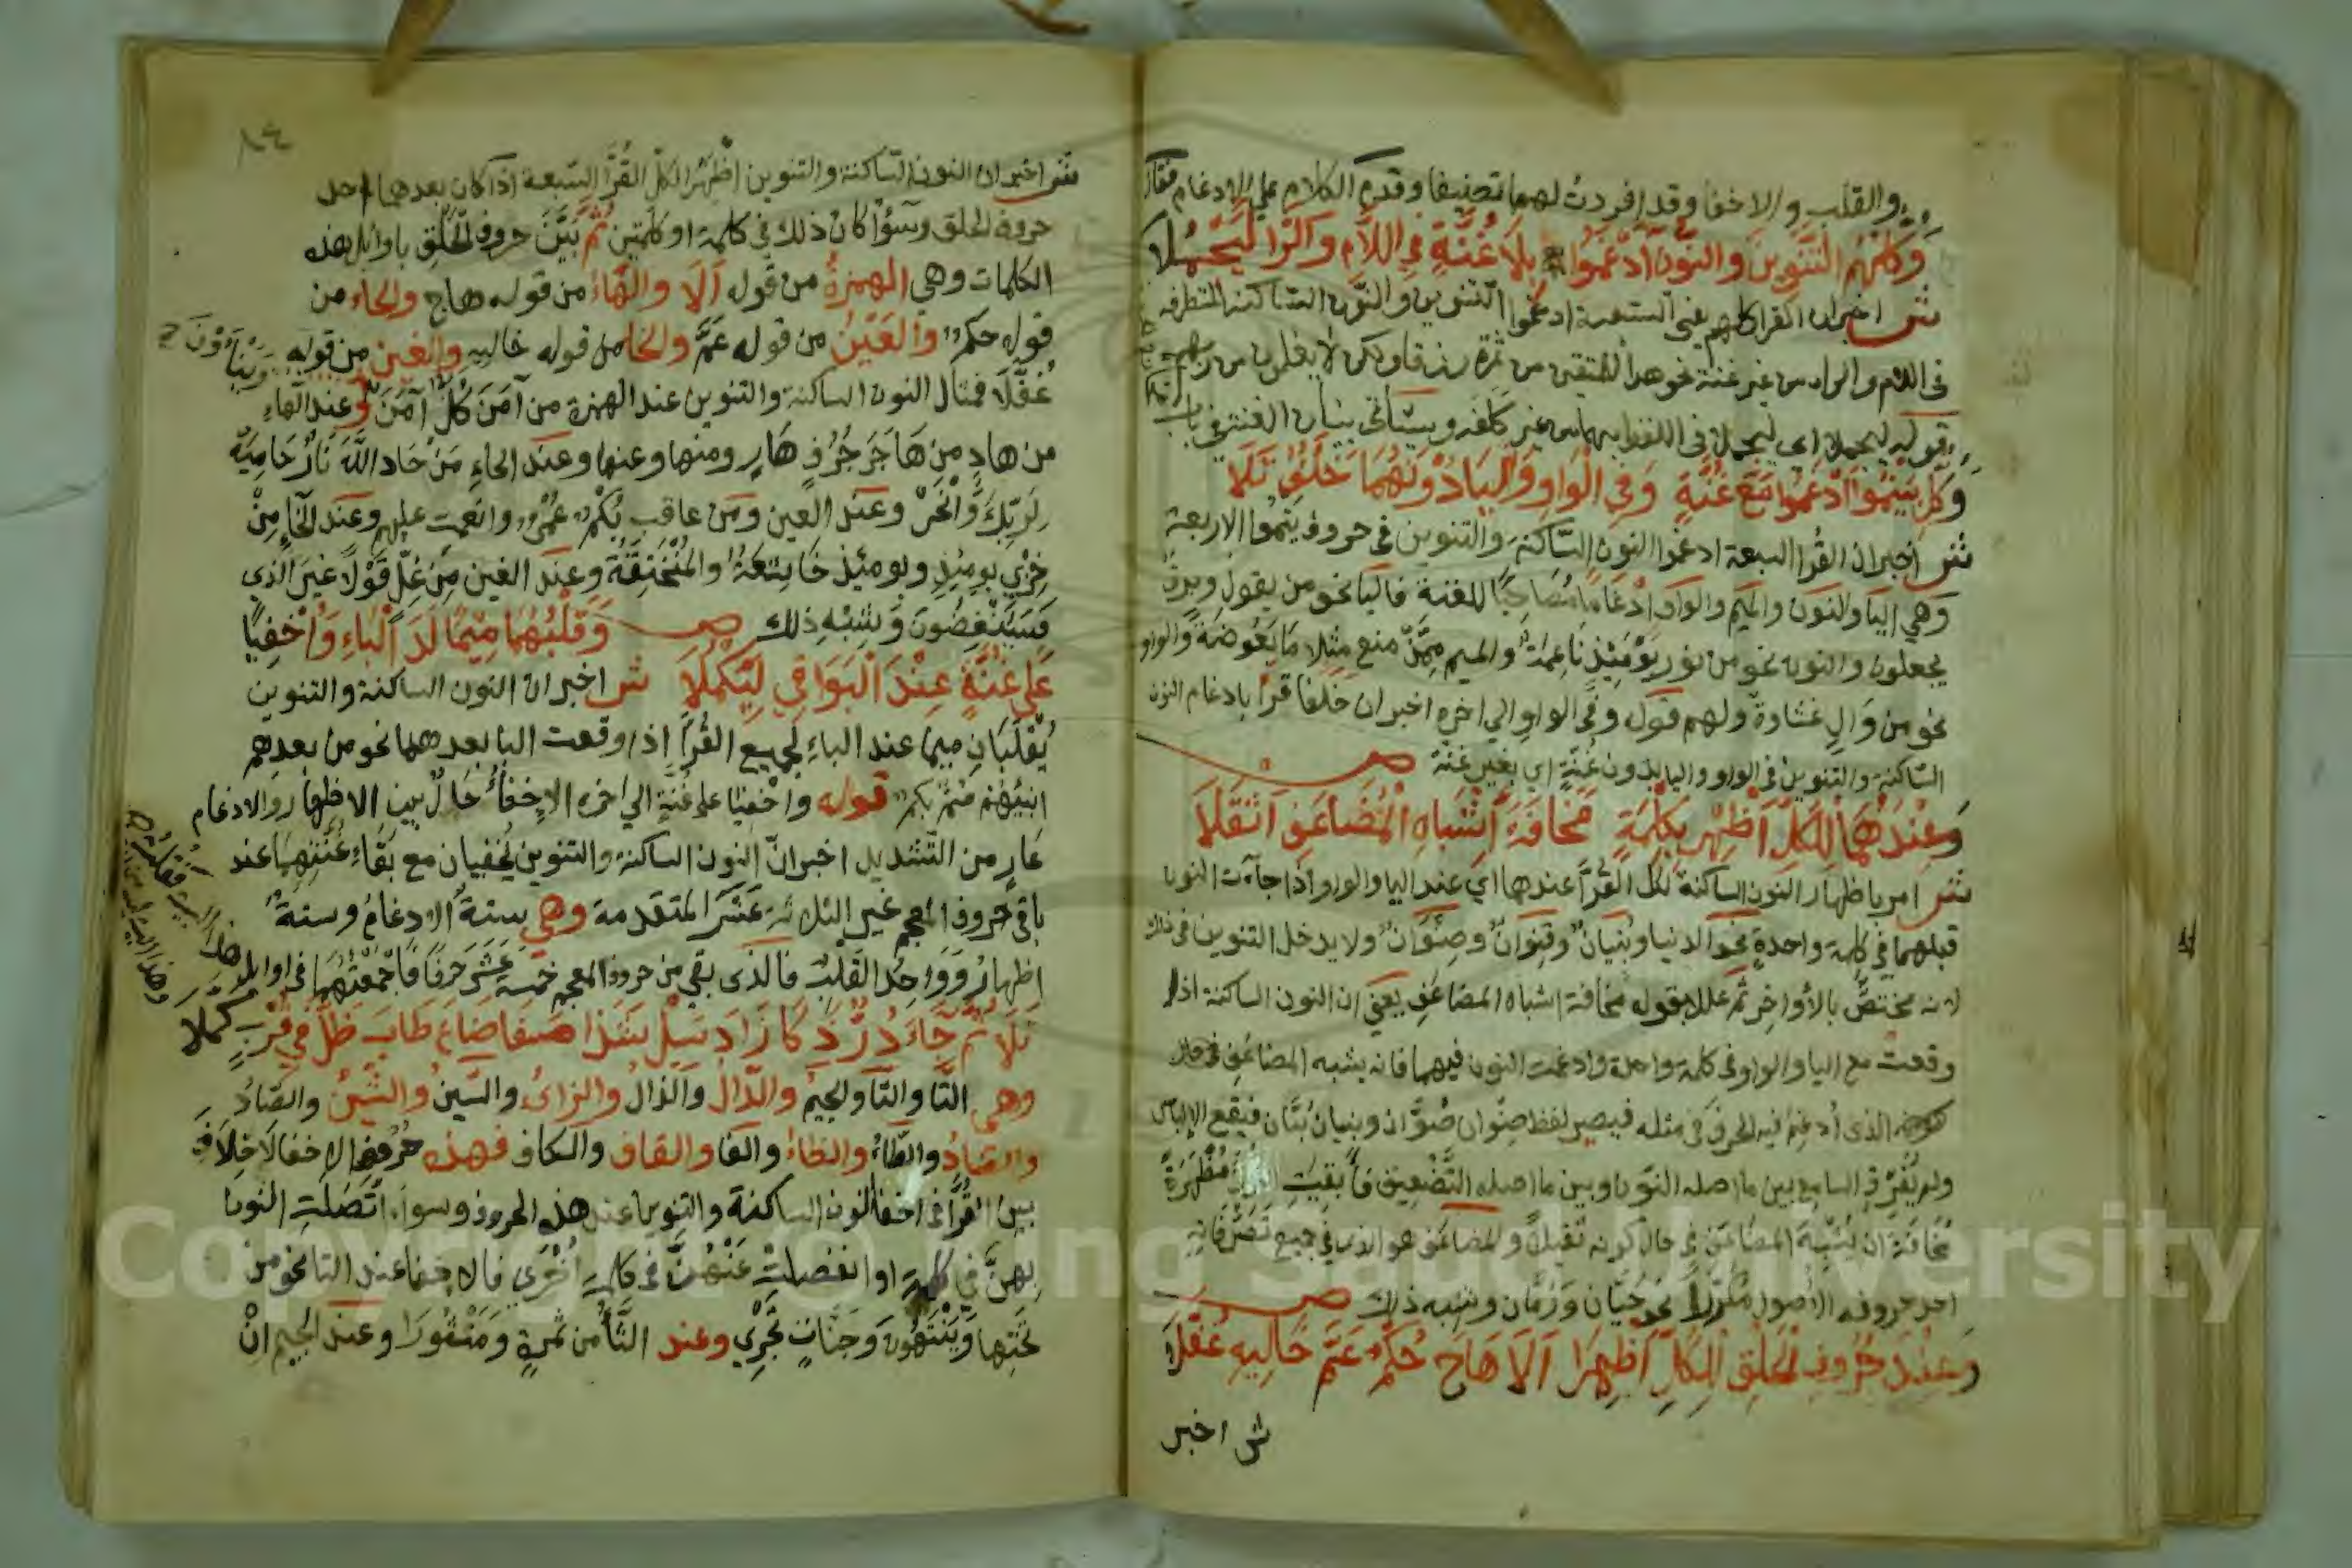 والقلب والاخفا وقد افردت لهما تصنيفا وقدم الكلام على الادغام فقال
وَكُلُّهُمُ التَّنْوِينَ وَالنُّونَ ادْغَمُوا بِلَا غُنَّةٍ فِي اللَّامِ وَالرَّا لِيَجْمُلَا
ش اخبر ان القرا كلهم يعني السبعة ادغموا التنوين والنون الساكنة المتطرفة
فى اللام والراء من غير غنة نحو هدا للمتقين من ثمرة رزقا ولكن لا يعلمون من ربهم
وقوله ليجملا اى ليجملا فى اللفظ بهما من غير كلفة وسيأتى بيان الغنة فى باب
وَكُلٌّ بِيَنْمُوا ادْغَمُوا مَعَ غُنَّةٍ وَفِي الْوَاوِ وَالْيَا دُونَهَا خَلَفٌ تَلَا
ش اخبر ان القُرا السبعة ادغموا النون السّاكنة والتنوين فى حروف ينموا الاربعة
وهي اليا والنون والميم والواو ادغامًا مُصَاحِبًا للغنة فاليا نحو من يقول وبرقٌ
يجعلون والنون نحو من نور يَوْمَئِذٍ نَاعِمَةٌ والميم مِمَّنْ منع مثلا مَا بَعُوضَةً والواو
نحو من وَالٍ غشاوةٌ ولهم قوله وفى الواو الي اخره اخبر ان خلفا قرأ بادغام النون
الساكنة والتنوين فى الواو واليا بدون غُنَّةٍ اى بغير غنة ص
وَعِنْدَهُمَا لِلْكُلِّ أَظْهِرْ بِكِلْمَةٍ مَخَافَةَ إِشْبَاهِ الْمُضَاعَفِ أَثْقَلَا
ش امر باظهار النون الساكنة لكل القُرَّا عندهما اى عند اليا والواو اذا جاءت النون
قبلهما في كلمة واحدةٍ نحو الدنيا وبُنْيَانٌ وقِنْوَانٌ وصِنْوَانٌ ولا يدخل التنوين فى ذلك
لانه مختصٌّ بالأواخِر ثم علل بقوله مخافة اشباه المضاعَفِ يعني ان النون الساكنة اذا
وقعت مع اليا والواو فى كلمة واحدة وادغمت النون فيهما فانه يشبه المضاعَف
الذى أُدغم فيه الحرف فى مثله فيصير لفظ صنوان صُوَّان وبنيان بُيَّان فيقع الإلباس
ولم يُفَرِّق السامع بين ما اصله النون وبين ما اصله التَّضْعِيف فأُبقيَتِ النون مُظْهَرَةً
مخافة ان يُشْبِهَ المضَاعَفَ فى حال كونه ثقيلًا والمضاعف هو الذى في جميع تَصَرُّفَاتِهِ
احد حروفه الاصول مكررا نحو حَيَّان وَرُمَّان وشبه ذلك ص
وَعِنْدَ حُرُوفِ الْحَلْقِ لِلْكُلِّ أُظْهِرَا أَلَا هَاجَ حُكْمٌ عَمَّ خَالِيهِ غُفَّلَا
ش اخبر
٨٤
ش اخبر ان النون السّاكنة والتنوين اظهر الكلّ القُرَّا السّبعة اذا كان بعدهما احد
حروف الحلق وسَوٌا كان ذلك في كلمة او كلمتين ثُمَّ بَيَّنَ حروف الْحَلْقِ باوايل هذه
الكلمات وهي الهمزةُ من قوله أَلَا والهَاءُ من قوله هاج والحاء من
قوله حكمٌ والعَيْنُ من قوله عَمَّ والخا من قوله خاليهِ والغين من قوله
غُفَّلَا فمثال النون الساكنة والتنوين عند الهمزة من آمَنَ كُلٌّ آمَنَ وَيَنْأَوْنَ وعند الهاءِ
من هادٍ مِن هَاجَر جُرُفٍ هَارٍ ومنها وعنها وعند الحاءِ مَنْ حَاد اللَّهَ نَارٌ حَامِيَةٌ
لِرَبِّكَ وَانْحَرْ وعند العين ومَن عاقب بُكْمٌ عُمْيٌ وانعمت عليهم وعند الخاءِ مِنْ
خِزْي يومئذٍ ويومئذٍ خَاشِعَةٌ والمُنْخَنِقَةُ وعند الغين مِن غِلٍّ قَوْلًا غيرَ الذي
فَسَيُنْغِضُونَ وَشِبْهِ ذلك ص وَقَلْبُهُمَا مِيمًا لَدَا الْبَاءِ وَأُخْفِيَا
عَلَى غُنَّةٍ عِنْدَ الْبَوَاقِي لِيَكْمُلَا ش اخبر ان النون الساكنة والتنوين
يُقْلَبَانِ ميما عند الباءِ لجميع القُرَّا اذا وقعت البا بعدهما نحو من بعدهم
انبئهُم صُمٌّ بكمٌ قوله واخفيا على غنَّةٍ الي اخره الاخفاءُ حَالٌ بين الاظهار والادغام
عَارٍ من التّشديد اخبر انّ النون الساكنة والتنوين يُخفيان مع بَقَاءِ غُنَّتِهِمَا عند
باقى حروف المعجم غير الثلاثة عَشَرَ المتقدمة وهي ستةُ الادغامُ وستةٌ
اظهارٌ وَوَاحِدُ القَلْبُ فالذى بقي من حروف المعجم خمسة عَشَرَ حرفًا قد جَمَعْتُهَا فى اوايل
تَلَا ثُمَّ جَاءَ دُرُّ ذَكَا زَادَ سَيْلُ شَذَا صَفَا ضَاعَ طَابَ ظَلَّ فِي قُرْبٍ كُمَّلَا
وهي التَّا والثَّا والجيمُ والدّالُ والذالُ والزاىُ والسّينُ والشّينُ والصّادُ
والضادُ والطّاءُ والظاءُ والفا والقاف والكاف فهذه حُرُوفُ الاخفا لَا خِلَافَ
بين القُرَّا فى اخفا النون الساكنة والتنوين عند هذه الحروف وسواء اتَّصَلَتِ النون
بهنَّ في كلمة او انفصلتْ عَنْهُنَّ فى كلمةٍ أُخْرَي فالاخفا عند التا نحو مِن
تَحْتِها وَيَنْتَهُونَ وَجَنَّاتٍ تَجْرِي وعند الثَّا مِن ثمرةٍ وَمَنْثُورًا وعند الجيم انْ